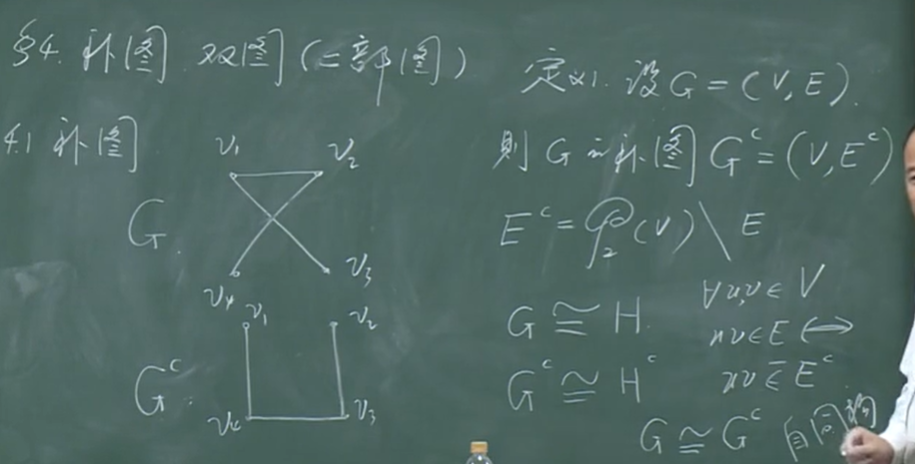 §4. 补图 双图(二部图)
4.1 补图
v₁ v₂
G
v₄ v₃
v₁ v₂
Gᶜ:
v₄ v₃
定义1. 设G=(V,E).
则G的补图Gᶜ=(V,Eᶜ)
Eᶜ=𝒫₂(V)\E
G≅H.
Gᶜ≅Hᶜ
∀u,v∈V
uv∈E↔
uv∈̄Eᶜ
G≅Gᶜ 自同构